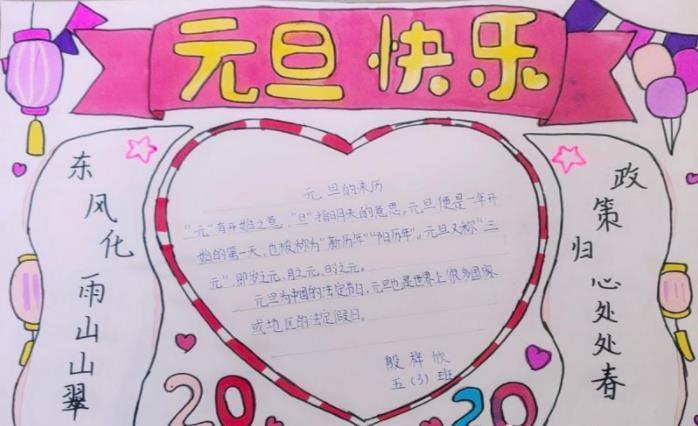 元旦快乐
东风化雨山山翠
元旦的来历
"元"有开始之意，"旦"指明天的意思。元旦便是一年开
始的第一天，也被称为"新历年""阳历年"。元旦又称"三
元"，即岁之元，月之元，日之元。
元旦为中国的法定节日，元旦也是世界上很多国家
或地区的法定假日。
殷梓欣
五（3）班
政策归心处处春
2020